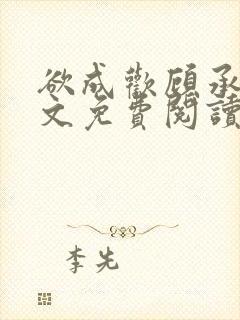 欲成歡顧承
文免費閱讀
李先